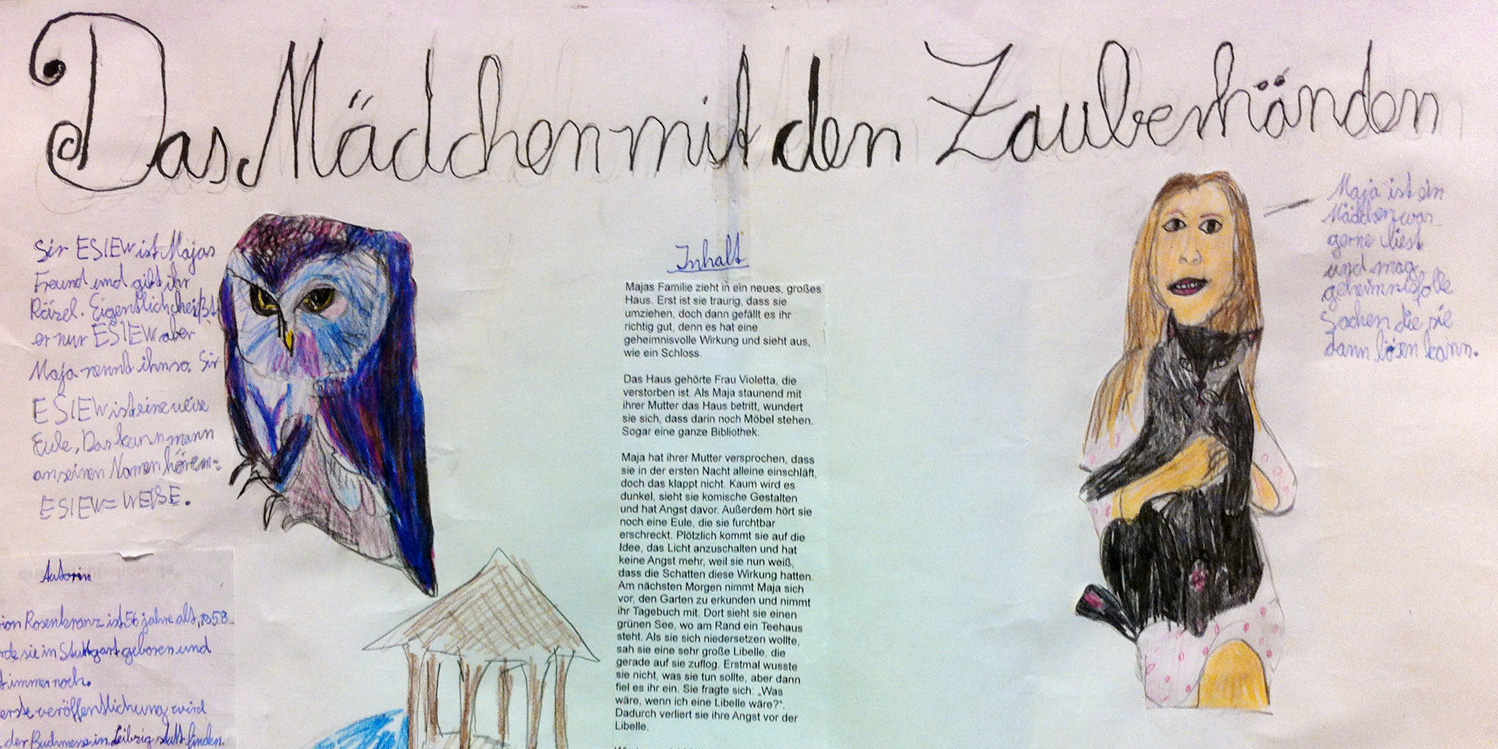 Das Mädchen mit den Zauberhänden
Sir ESIEW ist Majas
Freund und gibt ihr
Rätzel. Eigendlich heißt
er nur ESIEW aber
Maja nennt ihn so. Sir
ESIEW ist eine weise
Eule, Das kann mann
an seinen Namen hören:
ESIEW = WEISE.
Autorin
ion Rosenkranz ist 56 jahre alt, 1958
rde sie in Stuttgart geboren und
t immer noch.
erste veröffentlichung wird
der Buchmesse in Leibzig statt finden.
Inhalt
Majas Familie zieht in ein neues, großes
Haus. Erst ist sie traurig, dass sie
umziehen, doch dann gefällt es ihr
richtig gut, denn es hat eine
geheimnisvolle Wirkung und sieht aus,
wie ein Schloss.
Das Haus gehörte Frau Violetta, die
verstorben ist. Als Maja staunend mit
ihrer Mutter das Haus betritt, wundert
sie sich, dass darin noch Möbel stehen.
Sogar eine ganze Bibliothek.
Maja hat ihrer Mutter versprochen, dass
sie in der ersten Nacht alleine einschläft,
doch das klappt nicht. Kaum wird es
dunkel, sieht sie komische Gestalten
und hat Angst davor. Außerdem hört sie
noch eine Eule, die sie furchtbar
erschreckt. Plötzlich kommt sie auf die
Idee, das Licht anzuschalten und hat
keine Angst mehr, weil sie nun weiß,
dass die Schatten diese Wirkung hatten.
Am nächsten Morgen nimmt Maja sich
vor, den Garten zu erkunden und nimmt
ihr Tagebuch mit. Dort sieht sie einen
grünen See, wo am Rand ein Teehaus
steht. Als sie sich niedersetzen wollte,
sah sie eine sehr große Libelle, die
gerade auf sie zuflog. Erstmal wusste
sie nicht, was sie tun sollte, aber dann
fiel es ihr ein. Sie fragte sich: „Was
wäre, wenn ich eine Libelle wäre?“.
Dadurch verliert sie ihre Angst vor der
Libelle.
Maja ist ein
Mädchen was
gerne liest
und mag
geheimnisfolle
Sachen die sie
dann lösen kann.